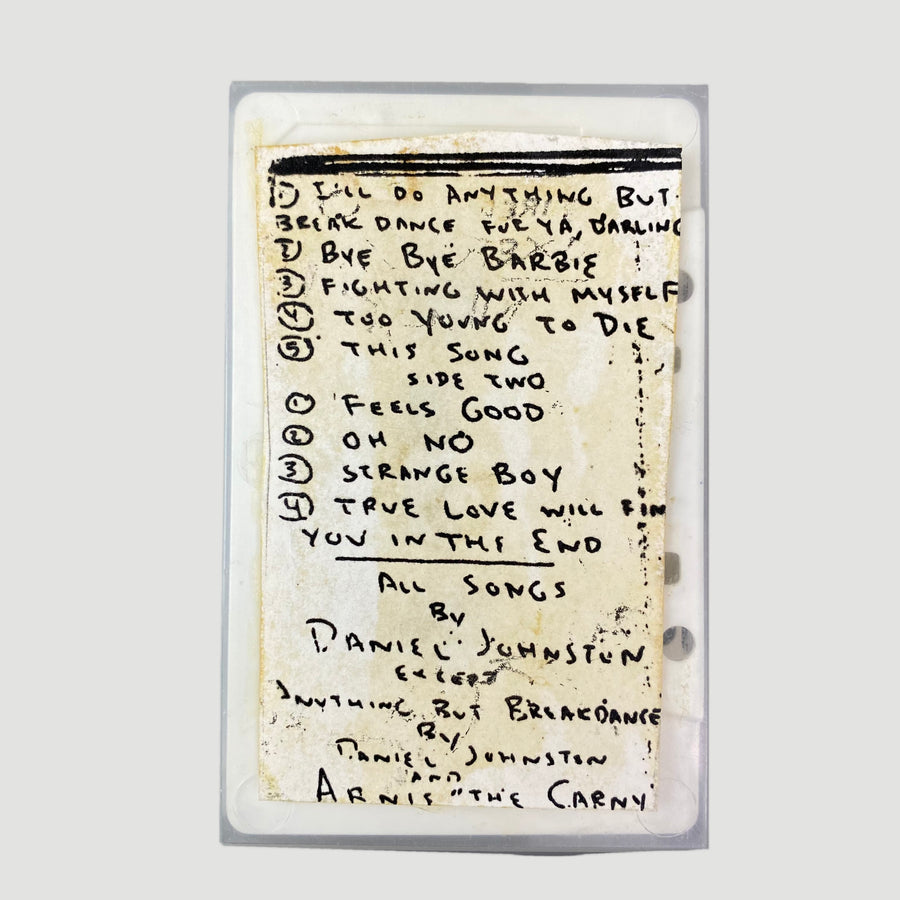 ① I'LL DO ANYTHING BUT
BREAK DANCE FUR YA, DARLING
② BYE BYE BARBIE
③ FIGHTING WITH MYSELF
④ TOO YOUNG TO DIE
⑤ THIS SONG
SIDE TWO
① FEELS GOOD
② OH NO
③ STRANGE BOY
④ TRUE LOVE WILL FIN
YOU IN THE END
ALL SONGS
BY
DANIEL JOHNSTON
EXCEPT
ANYTHING BUT BREAKDANCE
BY
DANIEL JOHNSTON
AND
ARNIE "THE CARNY"